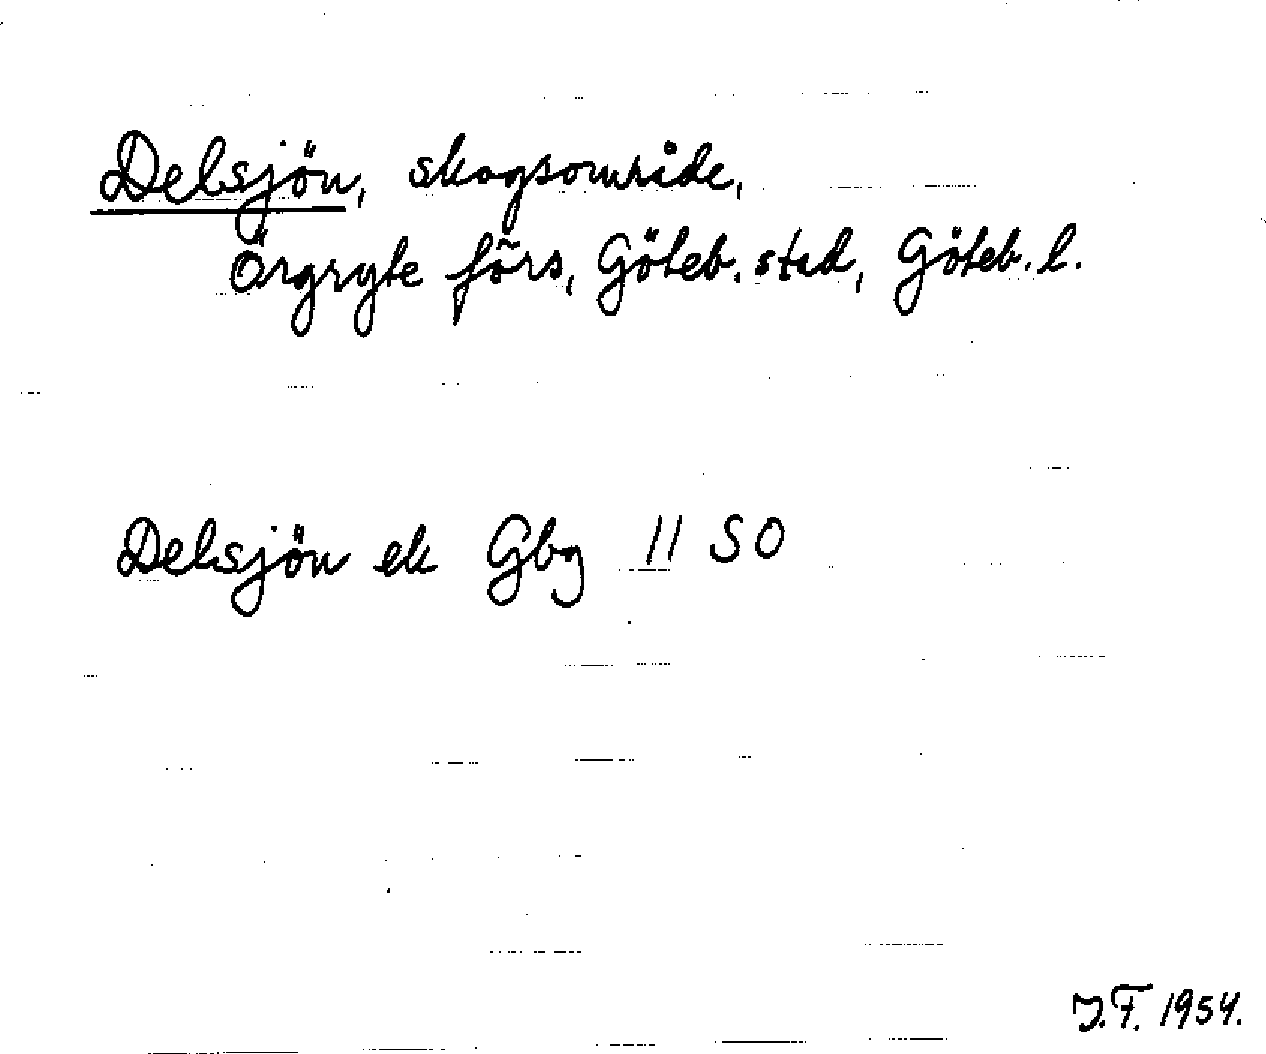 Delsjön, skogsområde,
Örgryte förs, Göteb. stad, Göteb. l.
Delsjön ek Gbg 11 SO
J.F. 1954.